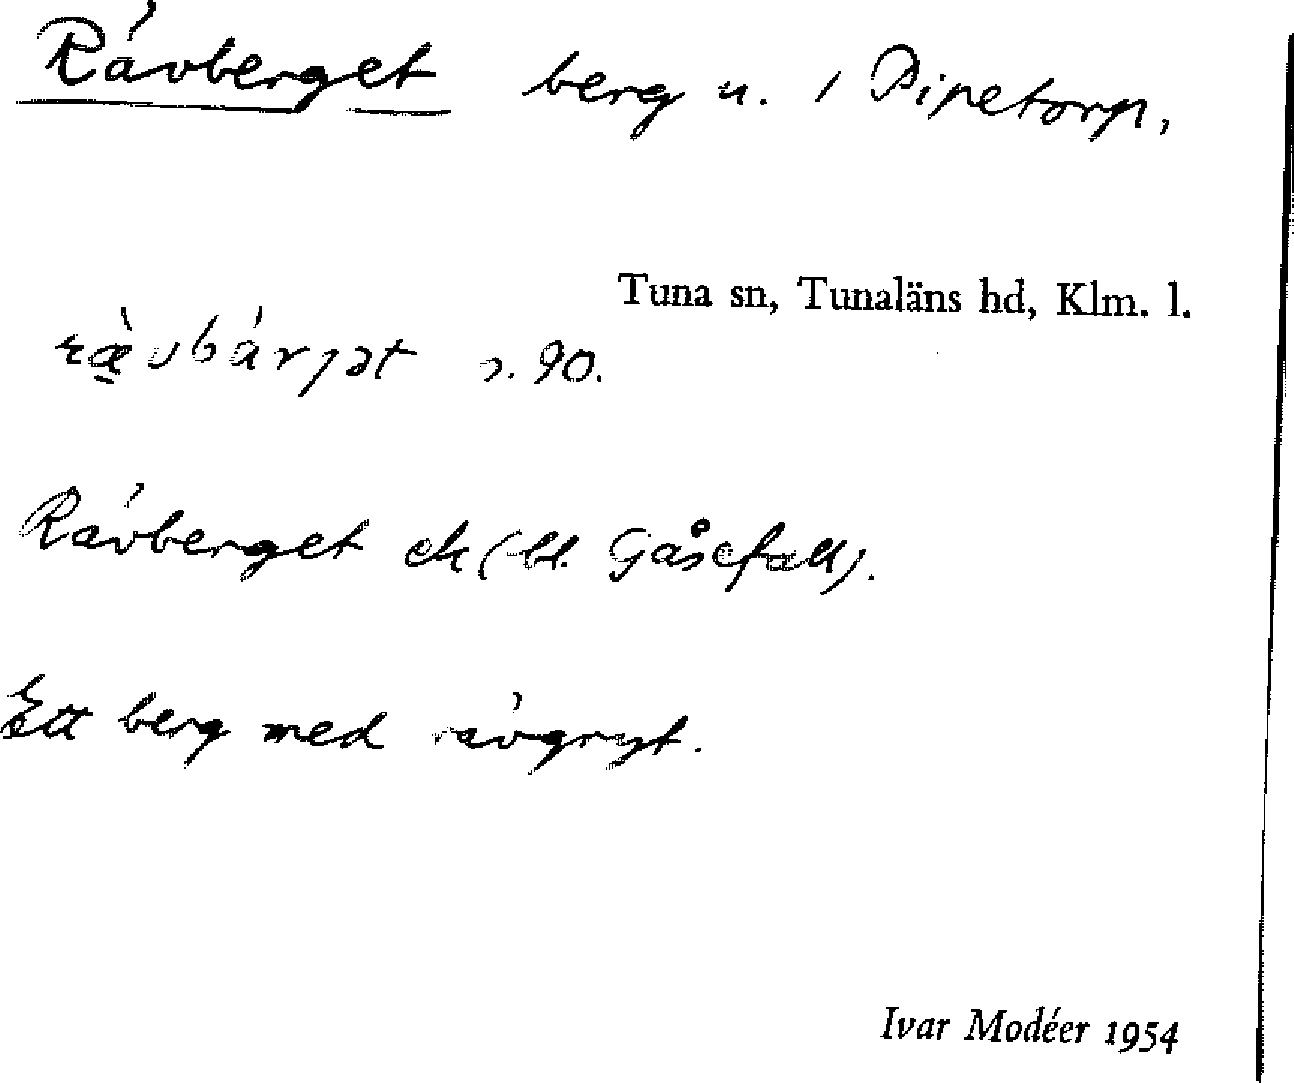 Rävberget berg n. 1 Pipetorp,
Tuna sn, Tunaläns hd, Klm. l.
ræ̀vbárjət s. 90.
Rävberget ek (bl. Gåsefall).
Ett berg med rävgryt.
Ivar Modéer 1954